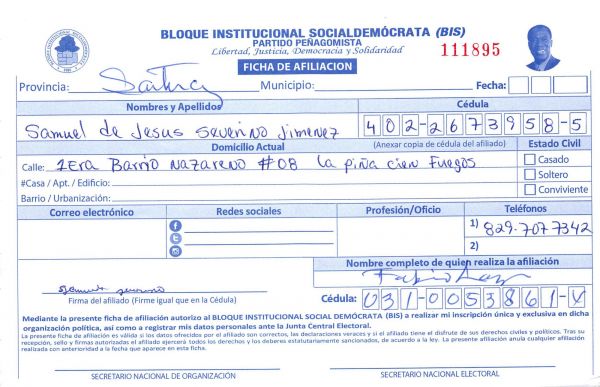 BLOQUE INSTITUCIONAL SOCIALDEMÓCRATA (BIS)
PARTIDO PEÑAGOMISTA
Libertad, Justicia, Democracia y Solidaridad
111895
FICHA DE AFILIACION
Provincia: Municipio: Fecha:
Nombres y Apellidos Cédula
Samuel de Jesus Severino Jimenez 402-2673958-5
Domicilio Actual (Anexar copia de cédula del afiliado) Estado Civil
Calle: 1Era Barrio Nazareno #08 La piña cien Fuegos Casado
#Casa / Apt. / Edificio: Soltero
Barrio / Urbanización: Conviviente
Correo electrónico Redes sociales Profesión/Oficio Teléfonos
1) 829-707-7342
2)
Nombre completo de quien realiza la afiliación
Firma del afiliado (Firme igual que en la Cédula) Cédula: 031-0053861-4
Mediante la presente ficha de afiliación autorizo al BLOQUE INSTITUCIONAL SOCIAL DEMÓCRATA (BIS) a realizar mi inscripción única y exclusiva en dicha
organización política, así como a registrar mis datos personales ante la Junta Central Electoral.
La presente ficha de afiliación es válida si los datos ofrecidos por el afiliado son correctos, las declaraciones veraces y si el afiliado tiene el disfrute de sus derechos civiles y políticos. Tras su
recepción, sello y firmas autorizadas el afiliado ejercerá todos los derechos y los deberes estatutariamente sancionados, de acuerdo a la ley. La presente afiliación anula cualquier afiliación
realizada con anterioridad a la fecha que aparece en esta ficha.
SECRETARIO NACIONAL DE ORGANIZACIÓN SECRETARIO NACIONAL ELECTORAL